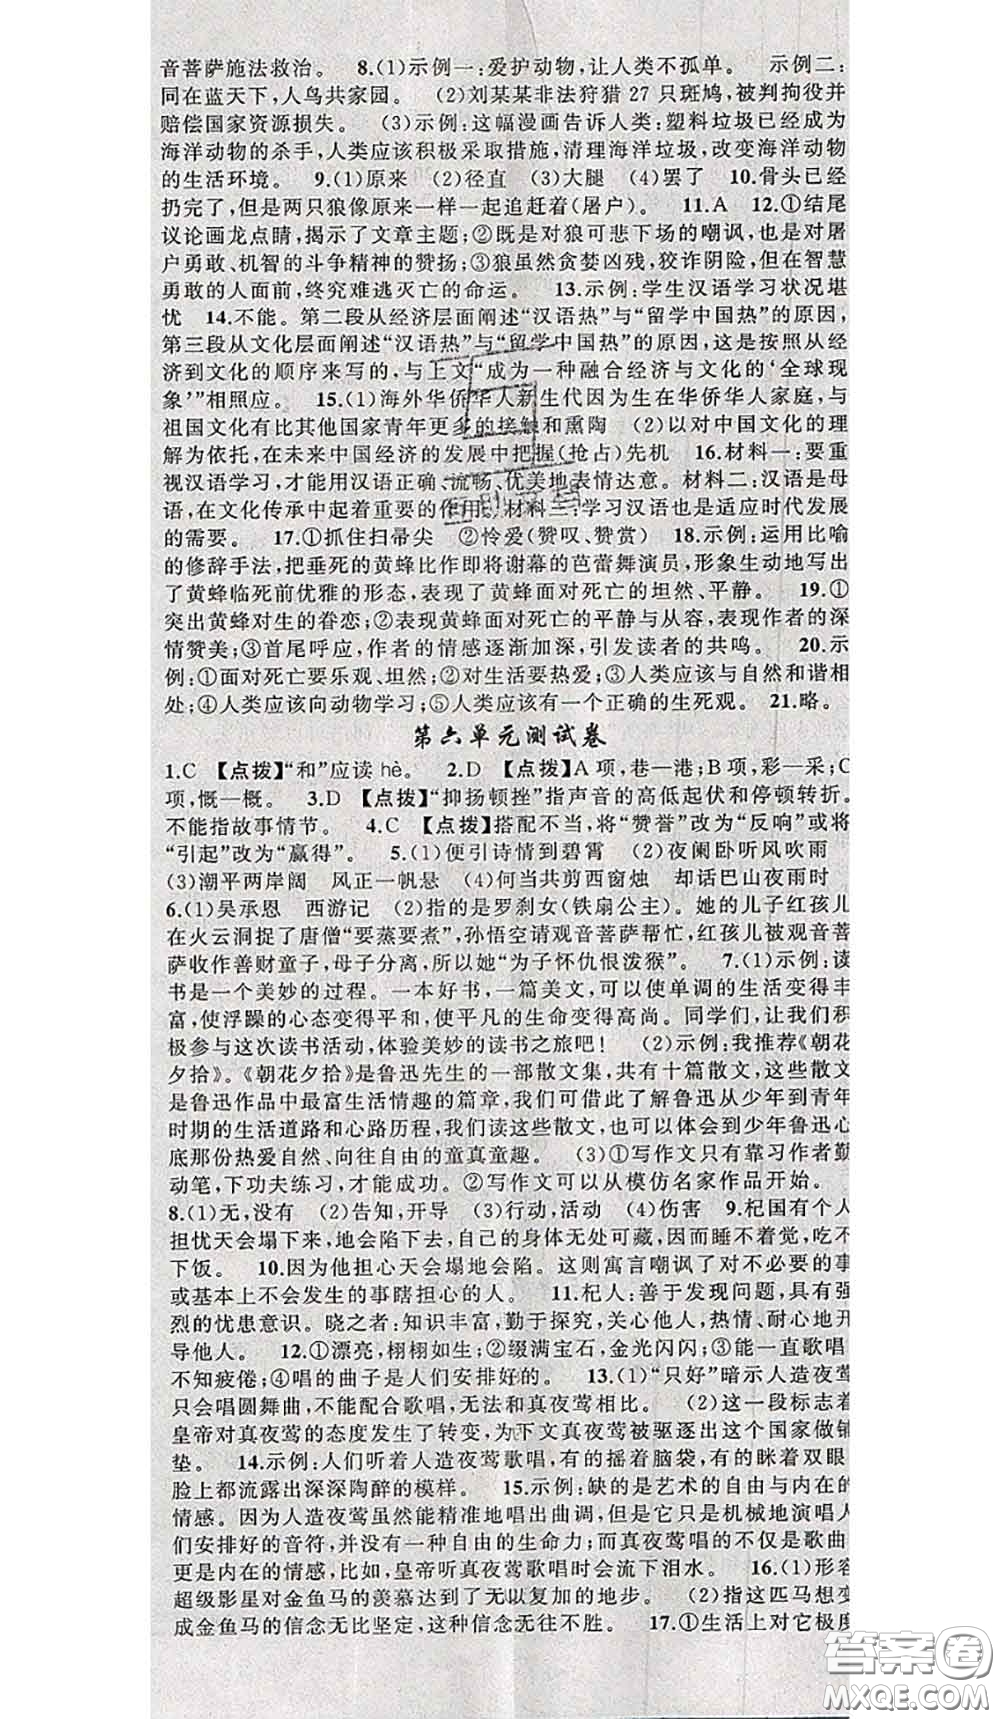 音菩萨施法救治。　8.(1)示例一:爱护动物,让人类不孤单。　示例二:
同在蓝天下,人鸟共家园。　(2)刘某某非法狩猎 27 只斑鸠,被判拘役并
赔偿国家资源损失。　(3)示例:这幅漫画告诉人类:塑料垃圾已经成为
海洋动物的杀手,人类应该积极采取措施,清理海洋垃圾,改变海洋动物
的生活环境。　9.(1)原来　(2)径直　(3)大腿　(4)罢了　10.骨头已经
扔完了,但是两只狼像原来一样一起追赶着(屠户)。　11.A　12.①结尾
议论画龙点睛,揭示了文章主题;②既是对狼可悲下场的嘲讽,也是对屠
户勇敢、机智的斗争精神的赞扬;③狼虽然贪婪凶残,狡诈阴险,但在智慧
勇敢的人面前,终究难逃灭亡的命运。　13.示例:学生汉语学习状况堪
忧　14.不能。第二段从经济层面阐述“汉语热”与“留学中国热”的原因,
第三段从文化层面阐述“汉语热”与“留学中国热”的原因,这是按照从经
济到文化的顺序来写的,与上文“成为一种融合经济与文化的‘全球现
象’”相照应。　15.(1)海外华侨华人新生代因为生在华侨华人家庭,与
祖国文化有比其他国家青年更多的接触和熏陶　(2)以对中国文化的理
解为依托,在未来中国经济的发展中把握(抢占)先机　16.材料一:要重
视汉语学习,才能用汉语正确、流畅、优美地表情达意。材料二:汉语是母
语,在文化传承中起着重要的作用。材料三:学习汉语也是适应时代发展
的需要。　17.①抓住扫帚尖　②怜爱(赞叹、赞赏)　18.示例:运用比喻
的修辞手法,把垂死的黄蜂比作即将谢幕的芭蕾舞演员,形象生动地写出
了黄蜂临死前优雅的形态,表现了黄蜂面对死亡的坦然、平静。　19.①
突出黄蜂对生的眷恋;②表现黄蜂面对死亡的平静与从容,表现作者的深
情赞美;③首尾呼应,作者的情感逐渐加深,引发读者的共鸣。　20.示
例:①面对死亡要乐观、坦然;②对生活要热爱;③人类应该与自然和谐相
处;④人类应该向动物学习;⑤人类应该有一个正确的生死观。　21.略。
第六单元测试卷
1.C　【点拨】“和”应读hè。　2.D　【点拨】A项,巷—港;B项,彩—采;C
项,慨—概。　3.D　【点拨】“抑扬顿挫”指声音的高低起伏和停顿转折。
不能指故事情节。　4.C　【点拨】搭配不当,将“赞誉”改为“反响”或将
“引起”改为“赢得”。　5.(1)便引诗情到碧霄　(2)夜阑卧听风吹雨
(3)潮平两岸阔　风正一帆悬　(4)何当共剪西窗烛　却话巴山夜雨时
6.(1)吴承恩　西游记　(2)指的是罗刹女(铁扇公主)。她的儿子红孩儿
在火云洞捉了唐僧“要蒸要煮”,孙悟空请观音菩萨帮忙,红孩儿被观音菩
萨收作善财童子,母子分离,所以她“为子怀仇恨泼猴”。　7.(1)示例:读
书是一个美妙的过程。一本好书,一篇美文,可以使单调的生活变得丰
富,使浮躁的心态变得平和,使平凡的生命变得高尚。同学们,让我们积
极参与这次读书活动,体验美妙的读书之旅吧!　(2)示例:我推荐《朝花
夕拾》。《朝花夕拾》是鲁迅先生的一部散文集,共有十篇散文,这些散文
是鲁迅作品中最富生活情趣的篇章,我们可借此了解鲁迅从少年到青年
时期的生活道路和心路历程,我们读这些散文,也可以体会到少年鲁迅心
底那份热爱自然、向往自由的童真童趣。　(3)①写作文只有靠习作者勤
动笔,下功夫练习,才能成功。②写作文可以从模仿名家作品开始。
8.(1)无,没有　(2)告知,开导　(3)行动,活动　(4)伤害　9.杞国有个人
担忧天会塌下来,地会陷下去,自己的身体无处可藏,因而睡不着觉,吃不
下饭。　10.因为他担心天会塌地会陷。这则寓言嘲讽了对不必要的事
或基本上不会发生的事瞎担心的人。　11.杞人:善于发现问题,具有强
烈的忧患意识。晓之者:知识丰富,勤于探究,关心他人,热情、耐心地开
导他人。　12.①漂亮,栩栩如生;②缀满宝石,金光闪闪;③能一直歌唱
不知疲倦;④唱的曲子是人们安排好的。　13.(1)“只好”暗示人造夜莺
只会唱圆舞曲,不能配合歌唱,无法和真夜莺相比。　(2)这一段标志着
皇帝对真夜莺的态度发生了转变,为下文真夜莺被驱逐出这个国家做铺
垫。　14.示例:人们听着人造夜莺歌唱,有的摇着脑袋,有的眯着双眼
脸上都流露出深深陶醉的模样。　15.示例:缺的是艺术的自由与内在的
情感。因为人造夜莺虽然能精准地唱出曲调,但它只是机械地演唱人
们安排好的音符,并没有一种自由的生命力;而真夜莺唱的不仅是歌曲
更是内在的情感,比如,皇帝听真夜莺歌唱时会流下泪水。　16.(1)形容
超级影星对金鱼马的羡慕达到了无以复加的地步。　(2)指这匹马想变
成金鱼马的信念无比坚定,这种信念无往不胜。　17.①生活上对它极度
答案圈
MXQE.COM